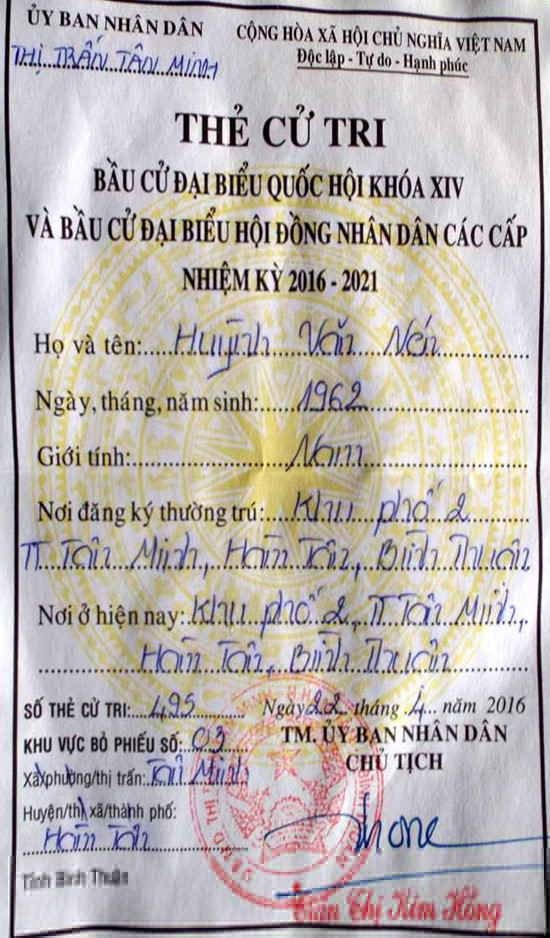 ỦY BAN NHÂN DÂN
THỊ TRẤN TÂN MINH
CỘNG HÒA XÃ HỘI CHỦ NGHĨA VIỆT NAM
Độc lập - Tự do - Hạnh phúc
THẺ CỬ TRI
BẦU CỬ ĐẠI BIỂU QUỐC HỘI KHÓA XIV
VÀ BẦU CỬ ĐẠI BIỂU HỘI ĐỒNG NHÂN DÂN CÁC CẤP
NHIỆM KỲ 2016 - 2021
Họ và tên: Huỳnh Văn Nén
Ngày, tháng, năm sinh: 1962
Giới tính: Nam
Nơi đăng ký thường trú: Khu phố 2
TT Tân Minh, Hàm Tân, Bình Thuận
Nơi ở hiện nay: Khu phố 2, TT Tân Minh,
Hàm Tân, Bình Thuận
SỐ THẺ CỬ TRI: 495
KHU VỰC BỎ PHIẾU SỐ: 03
Xã/phường/thị trấn: Tân Minh
Huyện/thị xã/thành phố:
Hàm Tân
Tỉnh Bình Thuận
Ngày 22 tháng 4 năm 2016
TM. ỦY BAN NHÂN DÂN
CHỦ TỊCH
Trần Thị Kim Hồng